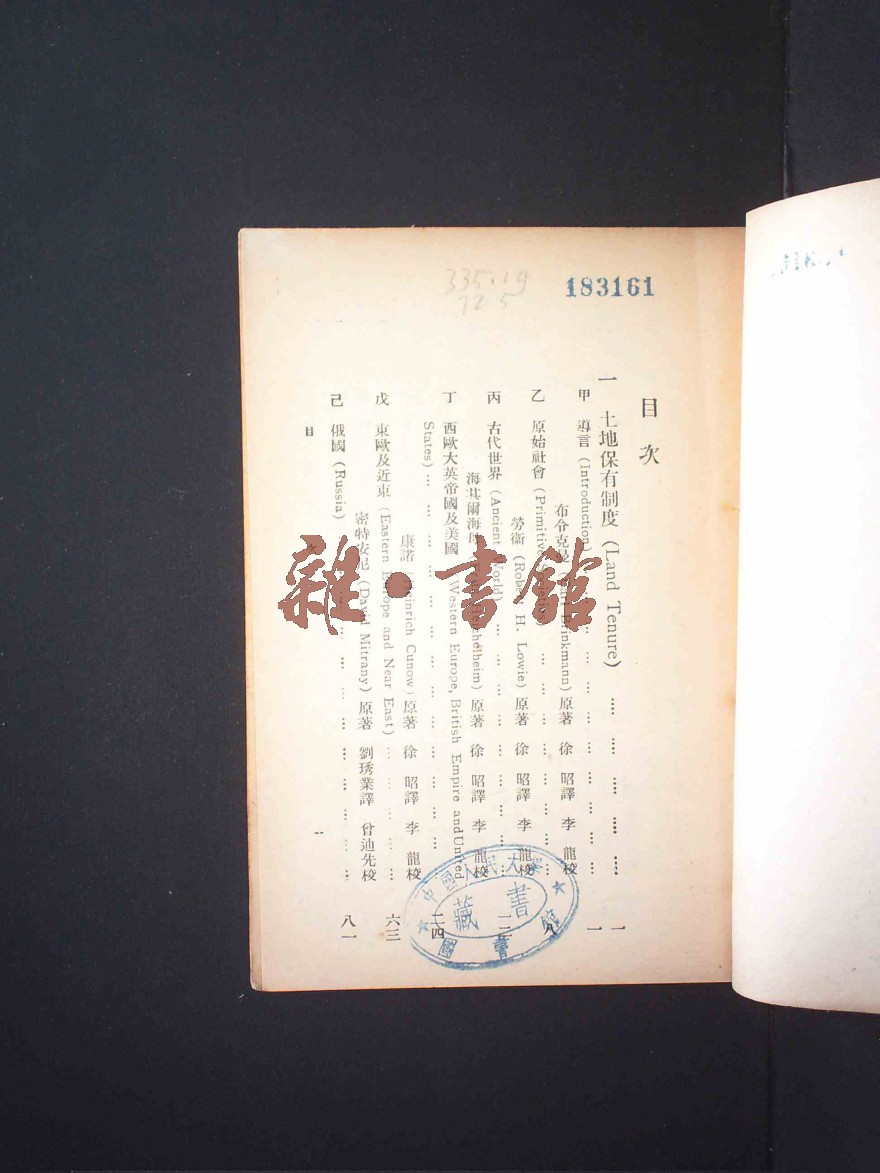 335.14
72 5
183161
目次
一 土地保有制度 (Land Tenure) …… …… …… …… …… 一
甲 導言 (Introduction) … … … … … … … 一
布令克曼 (Carl Brinkmann) 原著 徐 昭譯 李 龍校
乙 原始社會 (Primitive Societies) … … … … … … 八
勞衞 (Robert H. Lowie) 原著 徐 昭譯 李 龍校
丙 古代世界 (Ancient World) … … … … … … 一二
海其爾海 Heichelheim) 原著 徐 昭譯 李 龍校
丁 西歐大英帝國及美國 (Western Europe, British Empire and United
States) … … … … … … … … … … 二四
康諾 (Heinrich Cunow) 原著 徐 昭譯 李 龍校
戊 東歐及近東 (Eastern Europe and Near East) … … … … 六三
密特安尼 (David Mitrany) 原著 劉琇業譯 曾迪先校
己 俄國 (Russia) … … … … … … … … 八一
目 次
一
雜·書館
中國人民大學
藏書
圖書館